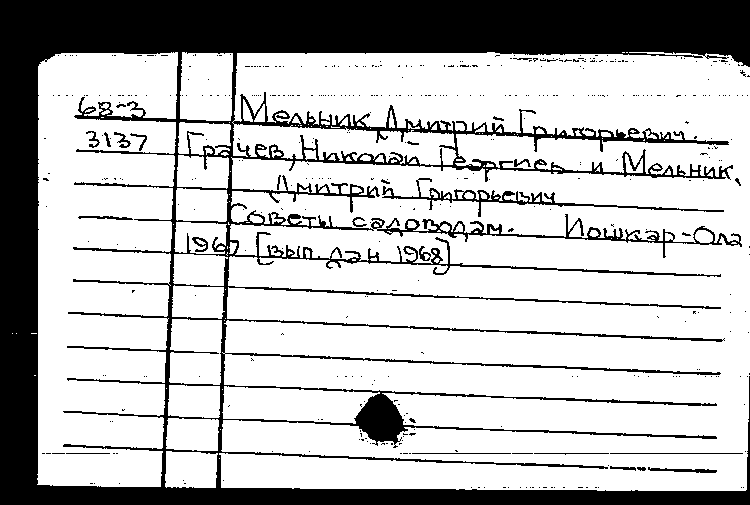 68-3 Мельник, Дмитрий Григорьевич.
3137 Грачев, Николай Георгиев и Мельник,
Дмитрий Григорьевич
Советы садоводам. Йошкар-Ола,
1967 [вып. дан 1968]